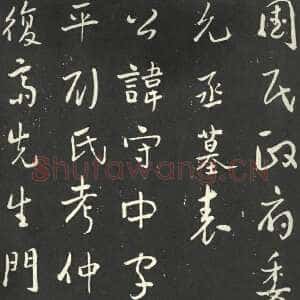 國民政府委
允丞墓表
公諱守中字
平劉氏考仲
復齋先生門
Shufawang.CN